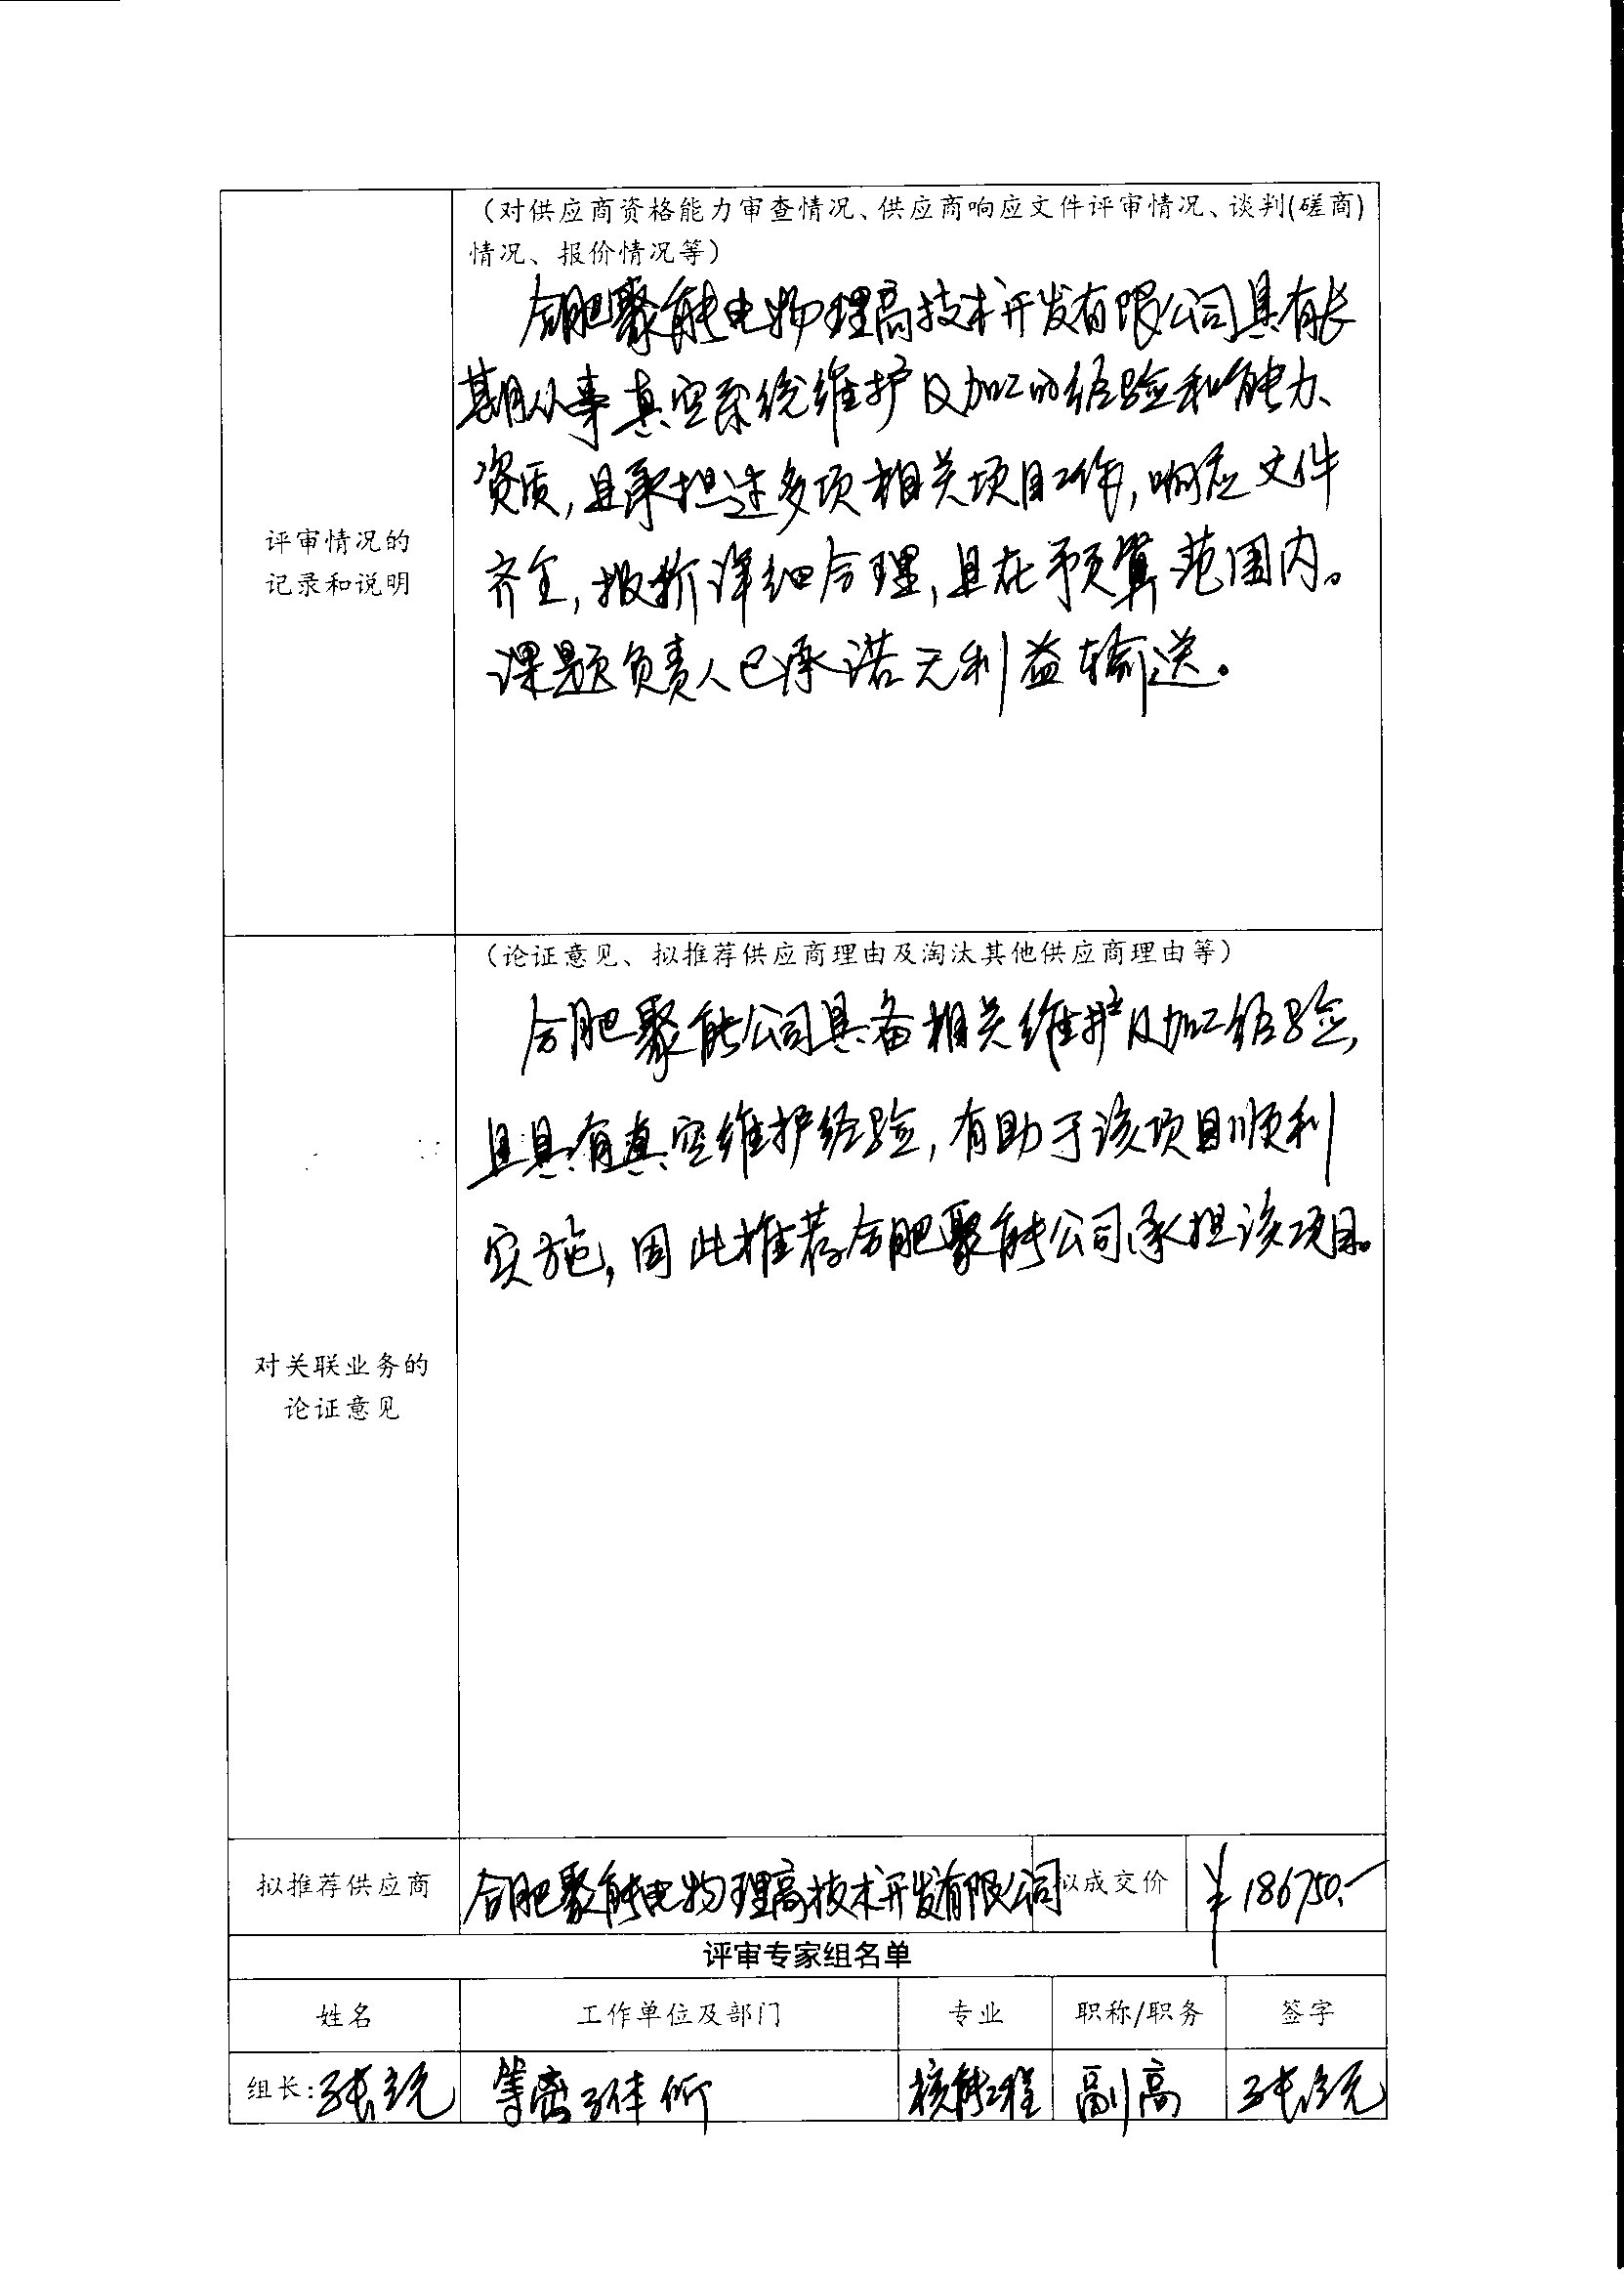 （对供应商资格能力审查情况、供应商响应文件评审情况、谈判(磋商)
情况、报价情况等）
合肥聚能电物理高技术开发有限公司具有长
期从事真空系统维护及加工的经验和能力、
资质,且承担过多项相关项目工作,响应文件
齐全,报价详细合理,且在预算范围内。
课题负责人已承诺无利益输送。
评审情况的
记录和说明
（论证意见、拟推荐供应商理由及淘汰其他供应商理由等）
合肥聚能公司具备相关维护及加工经验,
且具有真空维护经验,有助于该项目顺利
实施,因此推荐合肥聚能公司承担该项目。
对关联业务的
论证意见
拟推荐供应商 合肥聚能电物理高技术开发有限公司 拟成交价 ¥186750.-
评审专家组名单
姓名 工作单位及部门 专业 职称/职务 签字
组长: 等离子体所 核能工程 副高